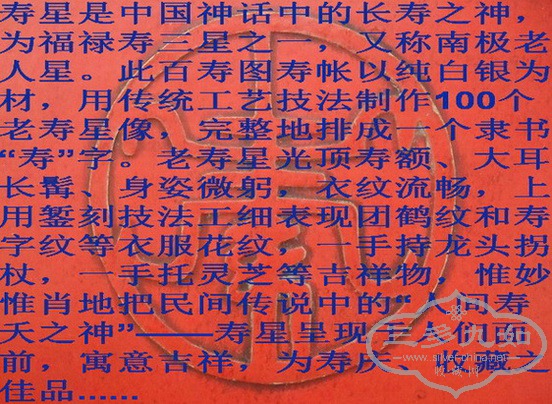 寿星是中国神话中的长寿之神，
为福禄寿三星之一，又称南极老
人星。此百寿图寿帐以纯白银为
材，用传统工艺技法制作100个
老寿星像，完整地排成一个隶书
“寿”字。老寿星光顶寿额、大耳
长髯、身姿微躬，衣纹流畅，上
用錾刻技法工细表现团鹤纹和寿
字纹等衣服花纹，一手持龙头拐
杖，一手托灵芝等吉祥物，惟妙
惟肖地把民间传说中的“人间寿
夭之神”——寿星呈现于人们面
前，寓意吉祥，为寿庆、之
佳品……
三多九如
www.silver-china.net
收藏网